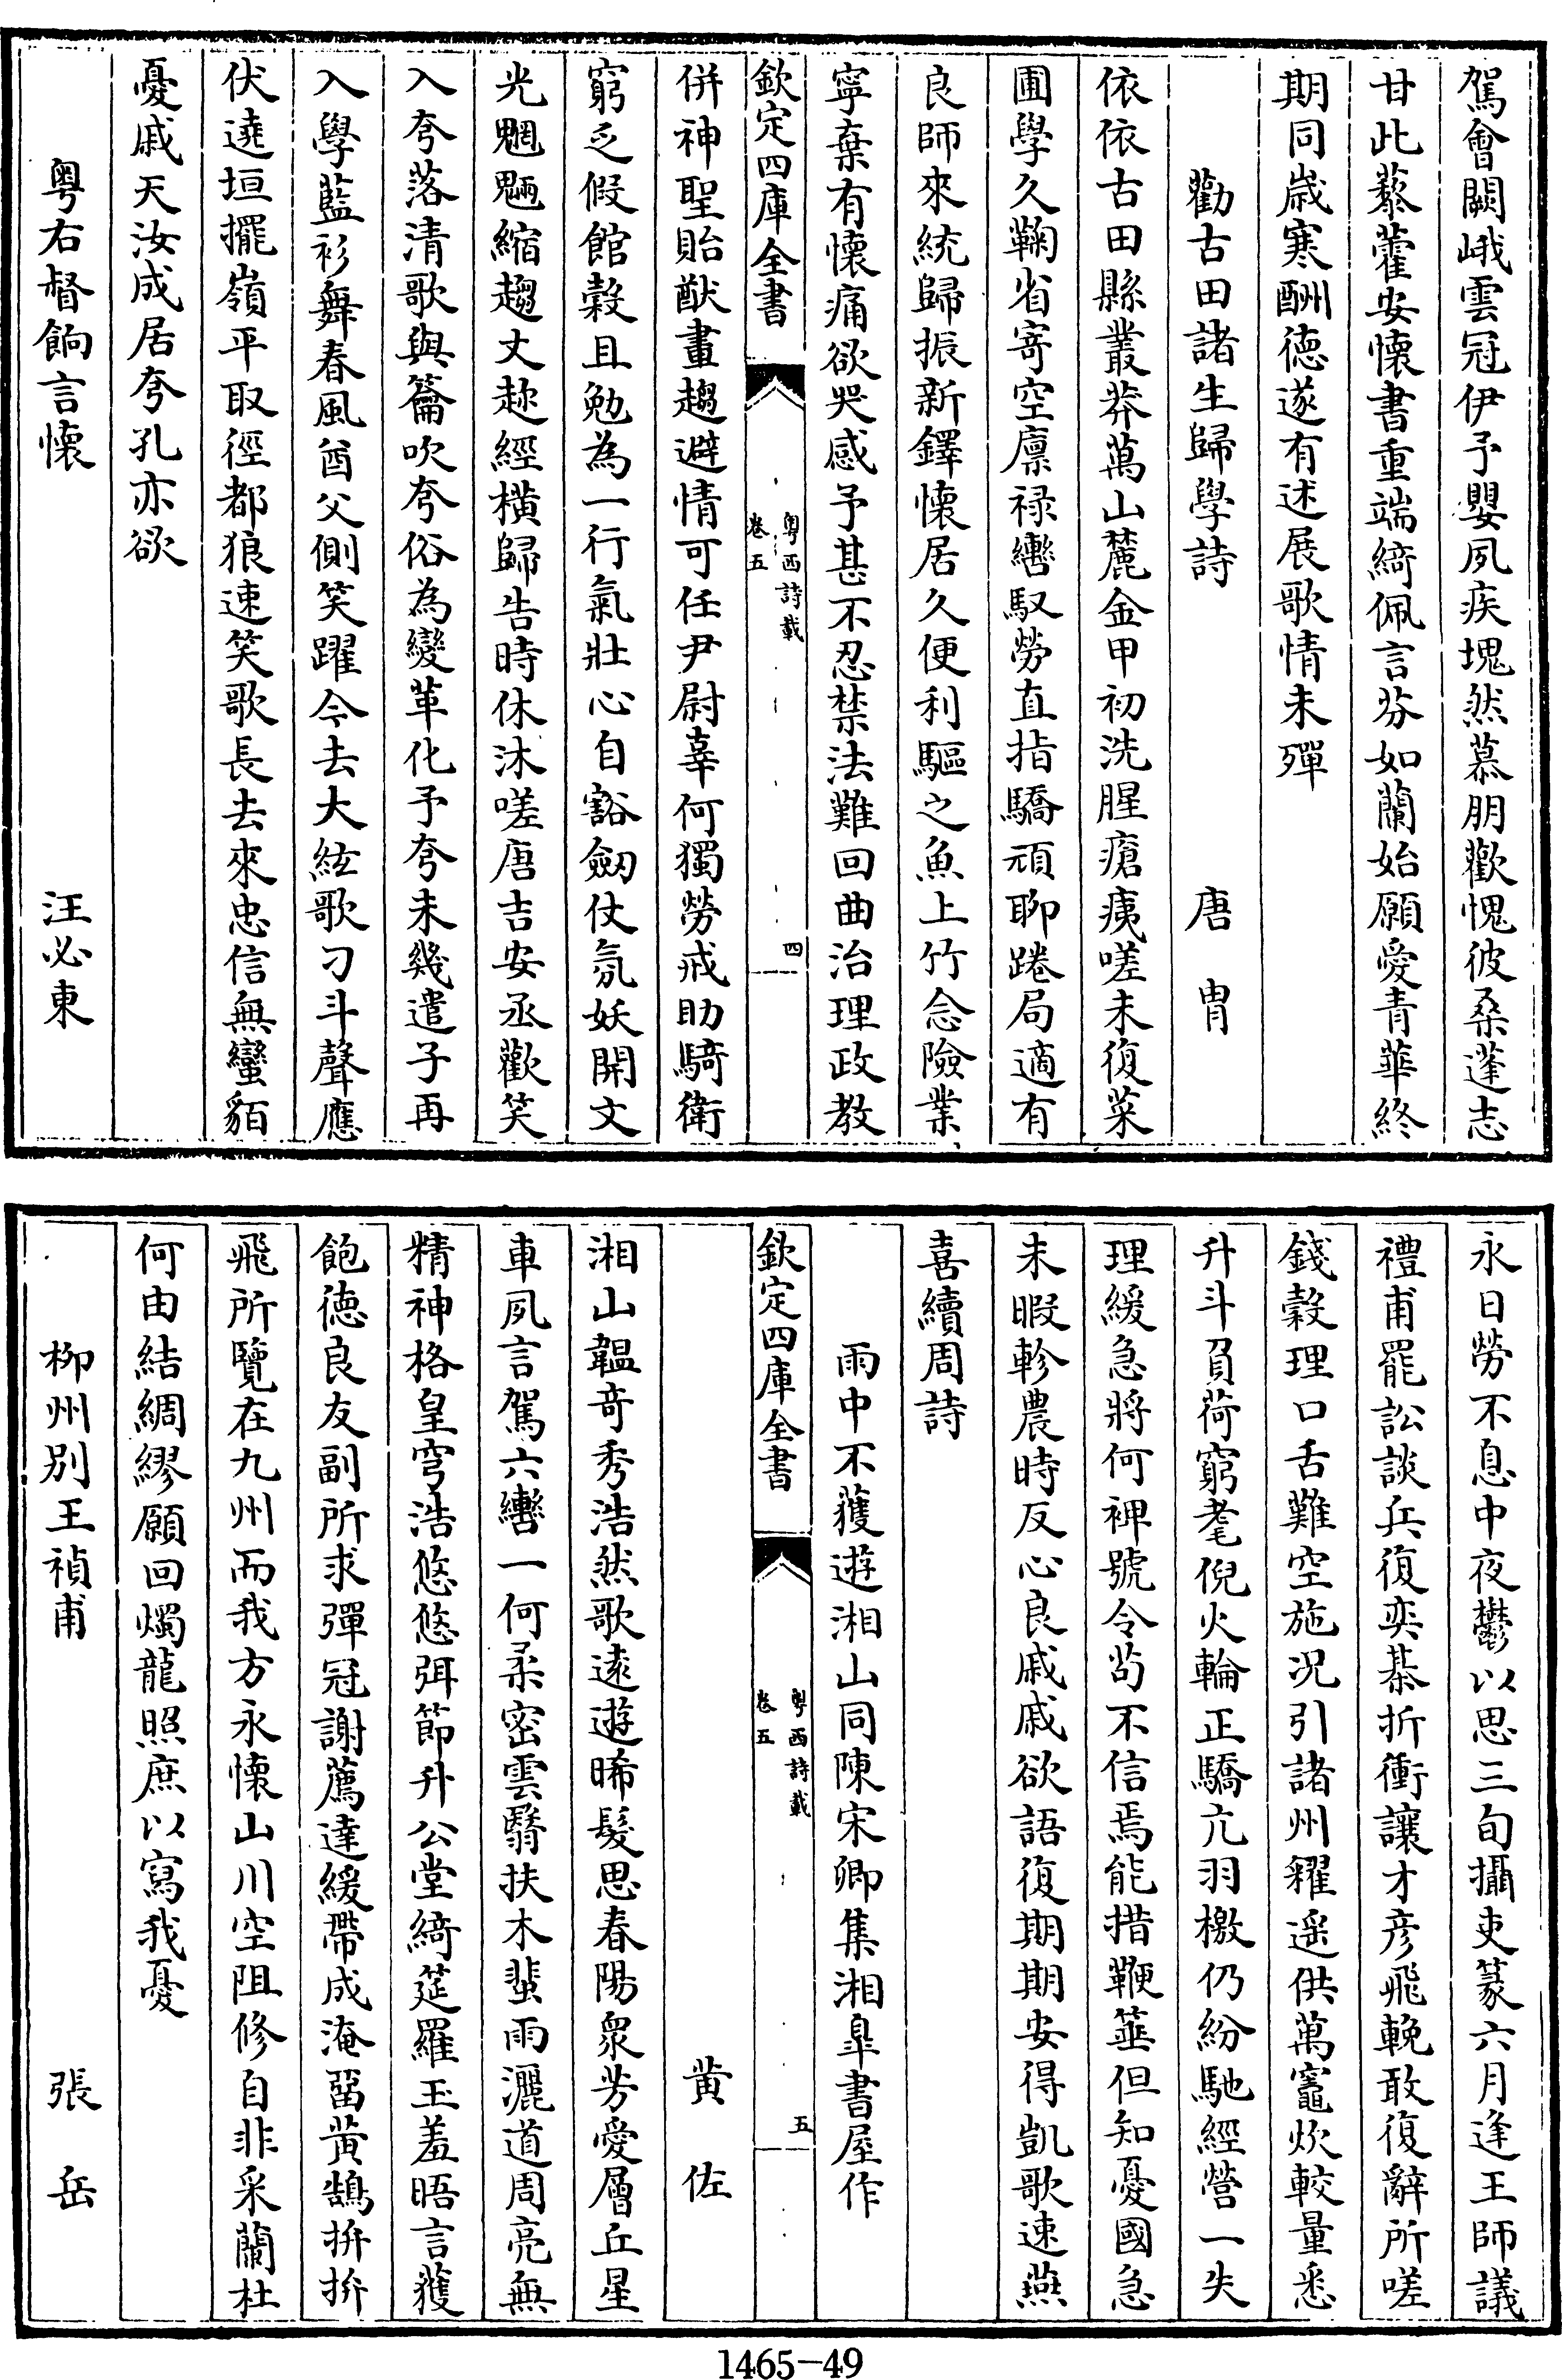 駕會闕峨雲冠伊予嬰夙疾塊然慕朋歡愧彼桑蓬志
甘此藜藿安懷書重端綺佩言芬如蘭始願愛青華終
期同歳寒酬徳遂有述展歌情未殫
勸古田諸生歸學詩 唐胄
依依古田縣叢莽萬山麓金甲初洗腥瘡痍嗟未復菜
圃學久鞠省寄空廪禄轡馭勞直指驕頑聊踡局適有
良師來統歸振新鐸懷居久便利驅之魚上竹念險業
寧棄有懷痛欲哭感予甚不忍禁法難回曲治理政教
欽定四庫全書
粤西詩載
卷五
四
併神聖貽猷畫趨避情可任尹尉辜何獨勞戒助騎衛
窮乏假館榖且勉為一行氣壯心自豁劒仗氛妖開文
光魍魎縮趨丈趂經横歸告時休沐嗟唐吉安丞歡笑
入夸落清歌與籥吹夸俗為變革化予夸未幾遣子再
入學藍衫舞春風酋父側笑躍今去大絃歌刁斗聲應
伏遶垣擺嶺平取徑都狼速笑歌長去來忠信無蠻貊
憂戚天汝成居夸孔亦欲
粤右督餉言懷 汪必東
永日勞不息中夜鬱以思三旬攝吏篆六月逢王師議
禮甫罷訟談兵復奕棊折衝讓才彦飛輓敢復辭所嗟
錢榖理口舌難空施况引諸州糴遥供萬竈炊較量悉
升斗負荷窮耄倪火輪正驕亢羽檄仍紛馳經營一失
理緩急將何裨號令茍不信焉能措鞭箠但知憂國急
未暇軫農時反心良戚戚欲語復期期安得凱歌速燕
喜續周詩
雨中不獲遊湘山同陳宋卿集湘臯書屋作
欽定四庫全書
粤西詩載
卷五
五
黄佐
湘山韞竒秀浩然歌逺遊晞髮思春陽衆芳愛層丘星
車夙言駕六轡一何柔密雲翳扶木蜚雨灑道周亮無
精神格皇穹浩悠悠弭節升公堂綺筵羅玉羞晤言獲
飽徳良友副所求彈冠謝薦達緩帶成淹留黄鵠拚拚
飛所覽在九州而我方永懷山川空阻修自非采蘭杜
何由結綢繆願回燭龍照庶以寫我憂
柳州别王禎甫 張岳
1465-49